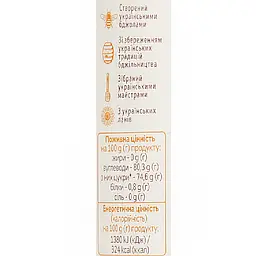 Створений
українськими
бджолами
Зі збереженням
українських
традицій
бджільництва
Зібраний
українськими
майстрами
З українських
ланів
Поживна цінність
на 100 g (г) продукту:
жири - 0 g (г)
вуглеводи - 80,3 g (г)
з них цукри* - 74,6 g (г)
білки - 0,8 g (г)
сіль - 0 g (г)
Енергетична цінність
(калорійність)
на 100 g (г) продукту:
1380 kJ (кДж) /
324 kcal (ккал)